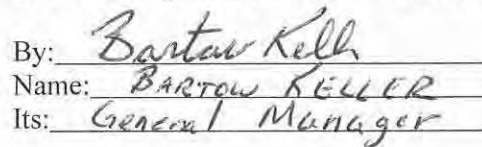 By: Bartow Kelle
Name: BARTOW KELLER
Its: General Manager